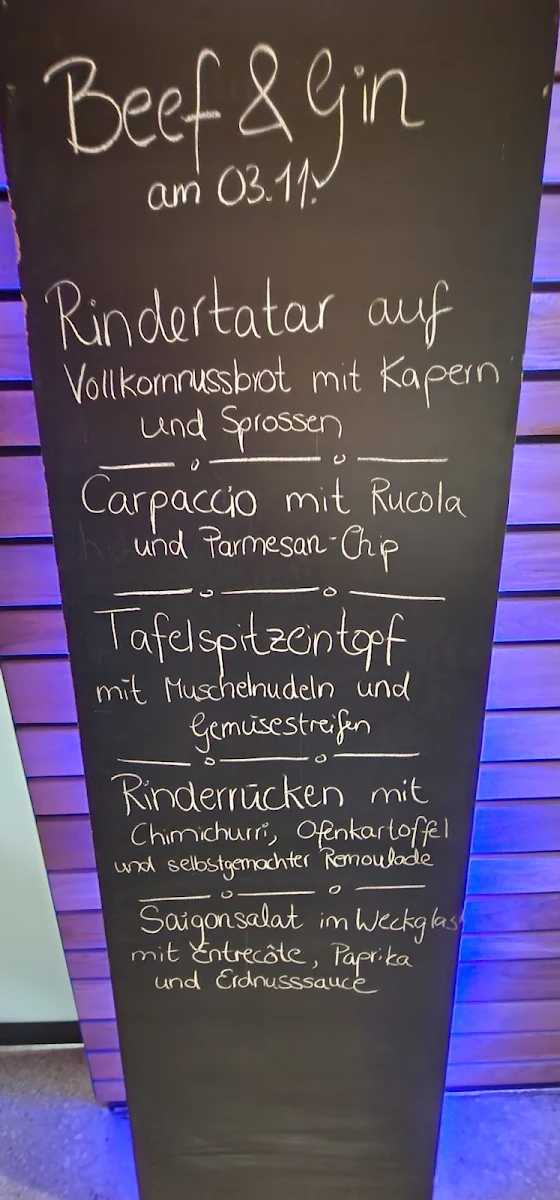 Beef & Gin
am 03.11.
Rindertatar auf
Vollkornnussbrot mit Kapern
und Sprossen
Carpaccio mit Rucola
und Parmesan-Chip
Tafelspitzeintopf
mit Muschelnudeln und
Gemüsestreifen
Rinderrücken mit
Chimichurri, Ofenkartoffel
und selbstgemachter Remoulade
Saigonsalat im Weckglas
mit Entrecôte, Paprika
und Erdnusssauce